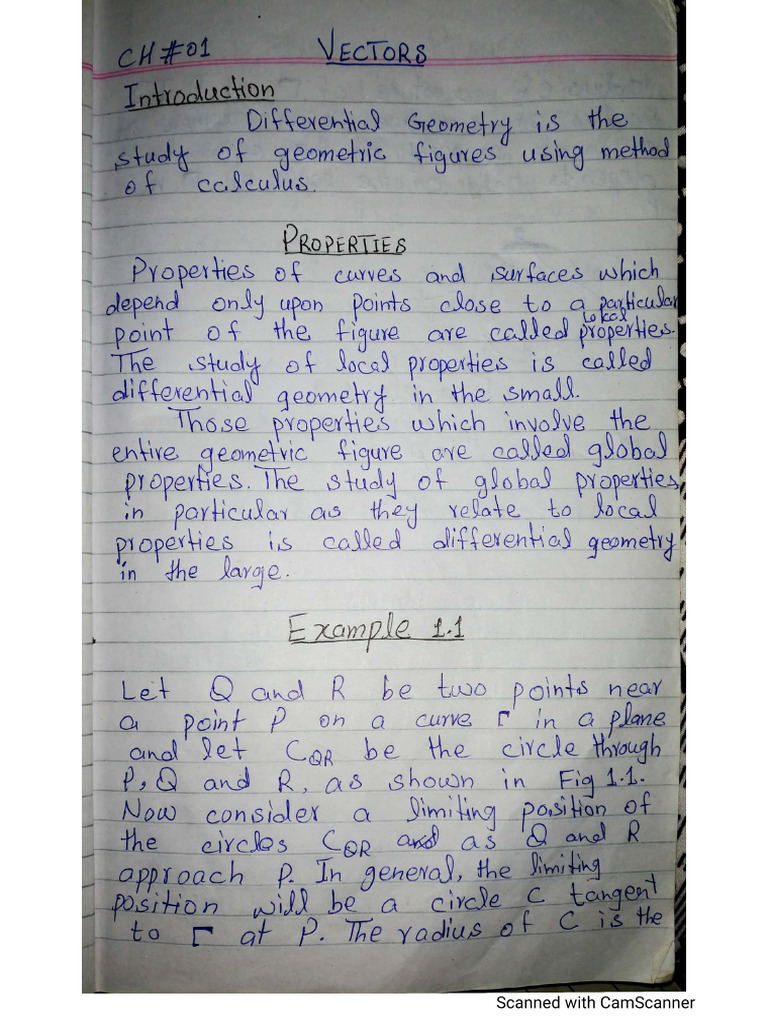 CH#01 VECTORS
Introduction
Differential Geometry is the
study of geometric figures using method
of calculus.
PROPERTIES
Properties of curves and surfaces which
depend only upon points close to a particular
point of the figure are called local properties.
The study of local properties is called
differential geometry in the small.
Those properties which involve the
entire geometric figure are called global
properties. The study of global properties
in particular as they relate to local
properties is called differential geometry
in the large.
Example 1.1
Let Q and R be two points near
a point P on a curve Γ in a plane
and let C_QR be the circle through
P, Q and R, as shown in Fig 1.1.
Now consider a limiting position of
the circles C_QR as Q and R
approach P. In general, the limiting
position will be a circle C tangent
to Γ at P. The radius of C is the
Scanned with CamScanner